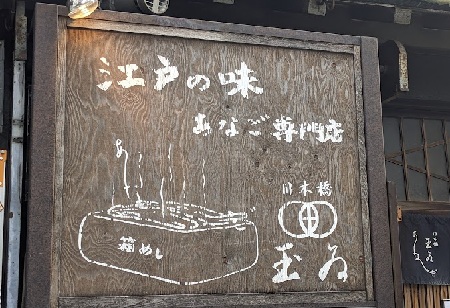 江戸の味
あなご専門店
あなご
箱めし
日本橋
玉ゐ
玉ゐ